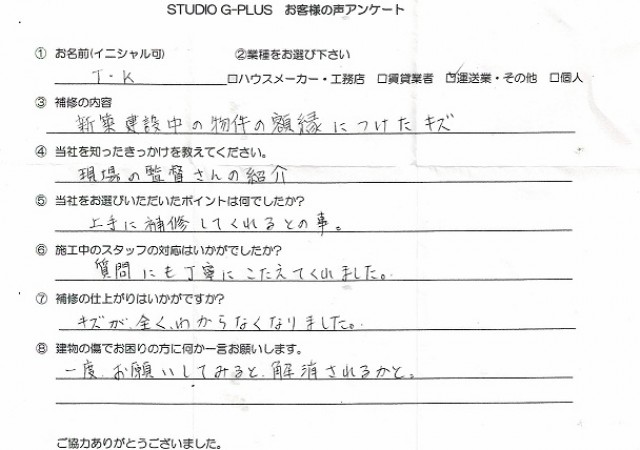 STUDIO G-PLUS お客様の声アンケート
① お名前(イニシャル可) ②業種をお選び下さい
T・K □ハウスメーカー・工務店 □賃貸業者 ☑運送業・その他 □個人
③ 補修の内容
新築建設中の物件の額縁につけたキズ
④ 当社を知ったきっかけを教えてください。
現場の監督さんの紹介
⑤ 当社をお選びいただいたポイントは何でしたか?
上手に補修してくれるとの事。
⑥ 施工中のスタッフの対応はいかがでしたか?
質問にも丁寧にこたえてくれました。
⑦ 補修の仕上がりはいかがですか?
キズが、全く、わからなくなりました。
⑧ 建物の傷でお困りの方に何か一言お願いします。
一度、お願いしてみると、解消されるかと。
ご協力ありがとうございました。